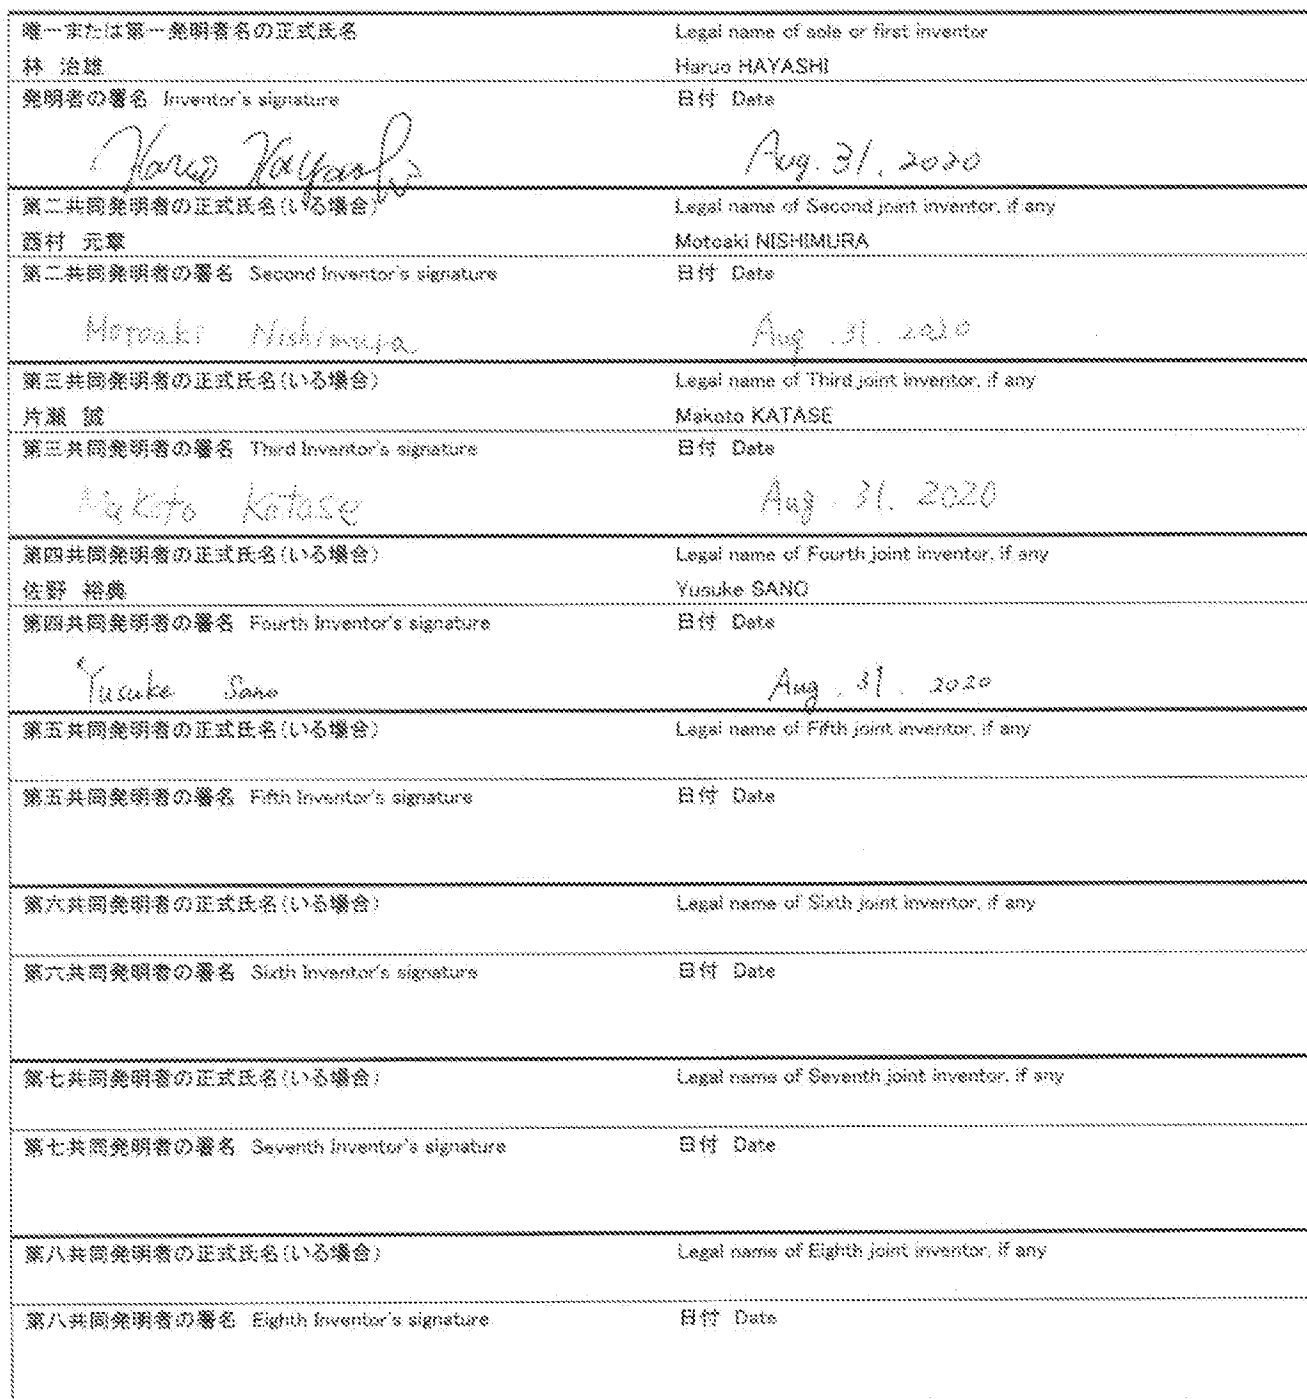 唯一または第一発明者名の正式氏名 Legal name of sole or first inventor
林 治雄 Haruo HAYASHI
発明者の署名 Inventor's signature 日付 Date
Haruo Hayashi Aug. 31. 2020
第二共同発明者の正式氏名(いる場合) Legal name of Second joint inventor, if any
西村 元章 Motoaki NISHIMURA
第二共同発明者の署名 Second Inventor's signature 日付 Date
Motoaki Nishimura Aug. 31. 2020
第三共同発明者の正式氏名(いる場合) Legal name of Third joint inventor, if any
片瀬 誠 Makoto KATASE
第三共同発明者の署名 Third Inventor's signature 日付 Date
Makoto Katase Aug. 31. 2020
第四共同発明者の正式氏名(いる場合) Legal name of Fourth joint inventor, if any
佐野 裕典 Yusuke SANO
第四共同発明者の署名 Fourth Inventor's signature 日付 Date
Yusuke Sano Aug. 31. 2020
第五共同発明者の正式氏名(いる場合) Legal name of Fifth joint inventor, if any
第五共同発明者の署名 Fifth Inventor's signature 日付 Date
第六共同発明者の正式氏名(いる場合) Legal name of Sixth joint inventor, if any
第六共同発明者の署名 Sixth Inventor's signature 日付 Date
第七共同発明者の正式氏名(いる場合) Legal name of Seventh joint inventor, if any
第七共同発明者の署名 Seventh Inventor's signature 日付 Date
第八共同発明者の正式氏名(いる場合) Legal name of Eighth joint inventor, if any
第八共同発明者の署名 Eighth Inventor's signature 日付 Date